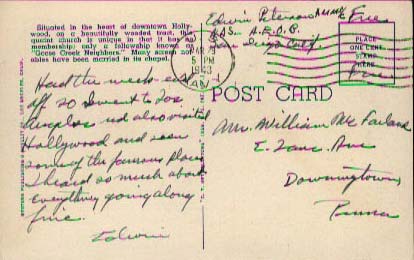 Situated in the heart of downtown Holly-
wood, on a beautifully wooded tract, this
quaint church is unique in that it has no
membership; only a fellowship known as
"Goose Creek Neighbors." Many screen not-
ables have been married in its chapel.
Edwin Peterson
Free
San Diego Calif.
MAR
5 PM
1943
PLACE
ONE CENT
STAMP
HERE
Free
POST CARD
Had the week end
off so I went to Los
Angeles and also visited
Hollywood and seen
some of the famous places
I heard so much about
everything going along
fine.
Edwin
Mr. William Mc Farland
E. Lanc. Ave
Downingtown,
Penna